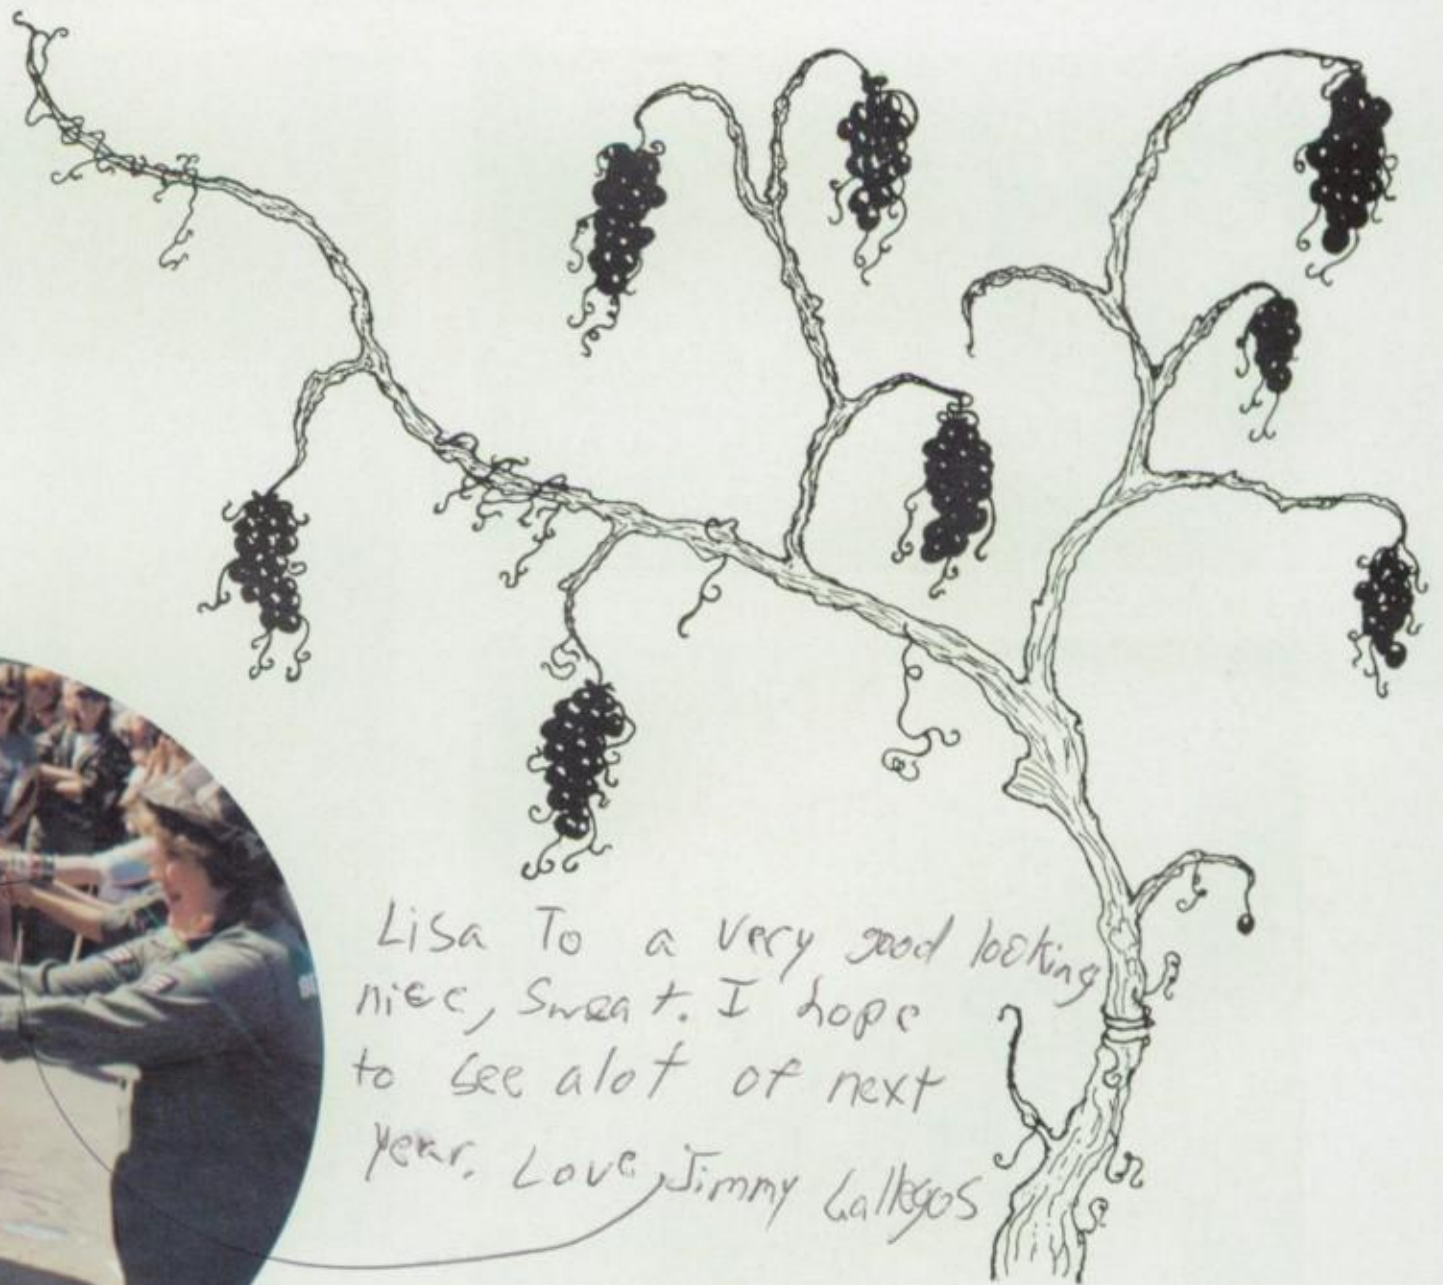 Lisa To a very good looking
niec, Sweat. I hope
to see alot of next
year. Love, Jimmy Gallegos